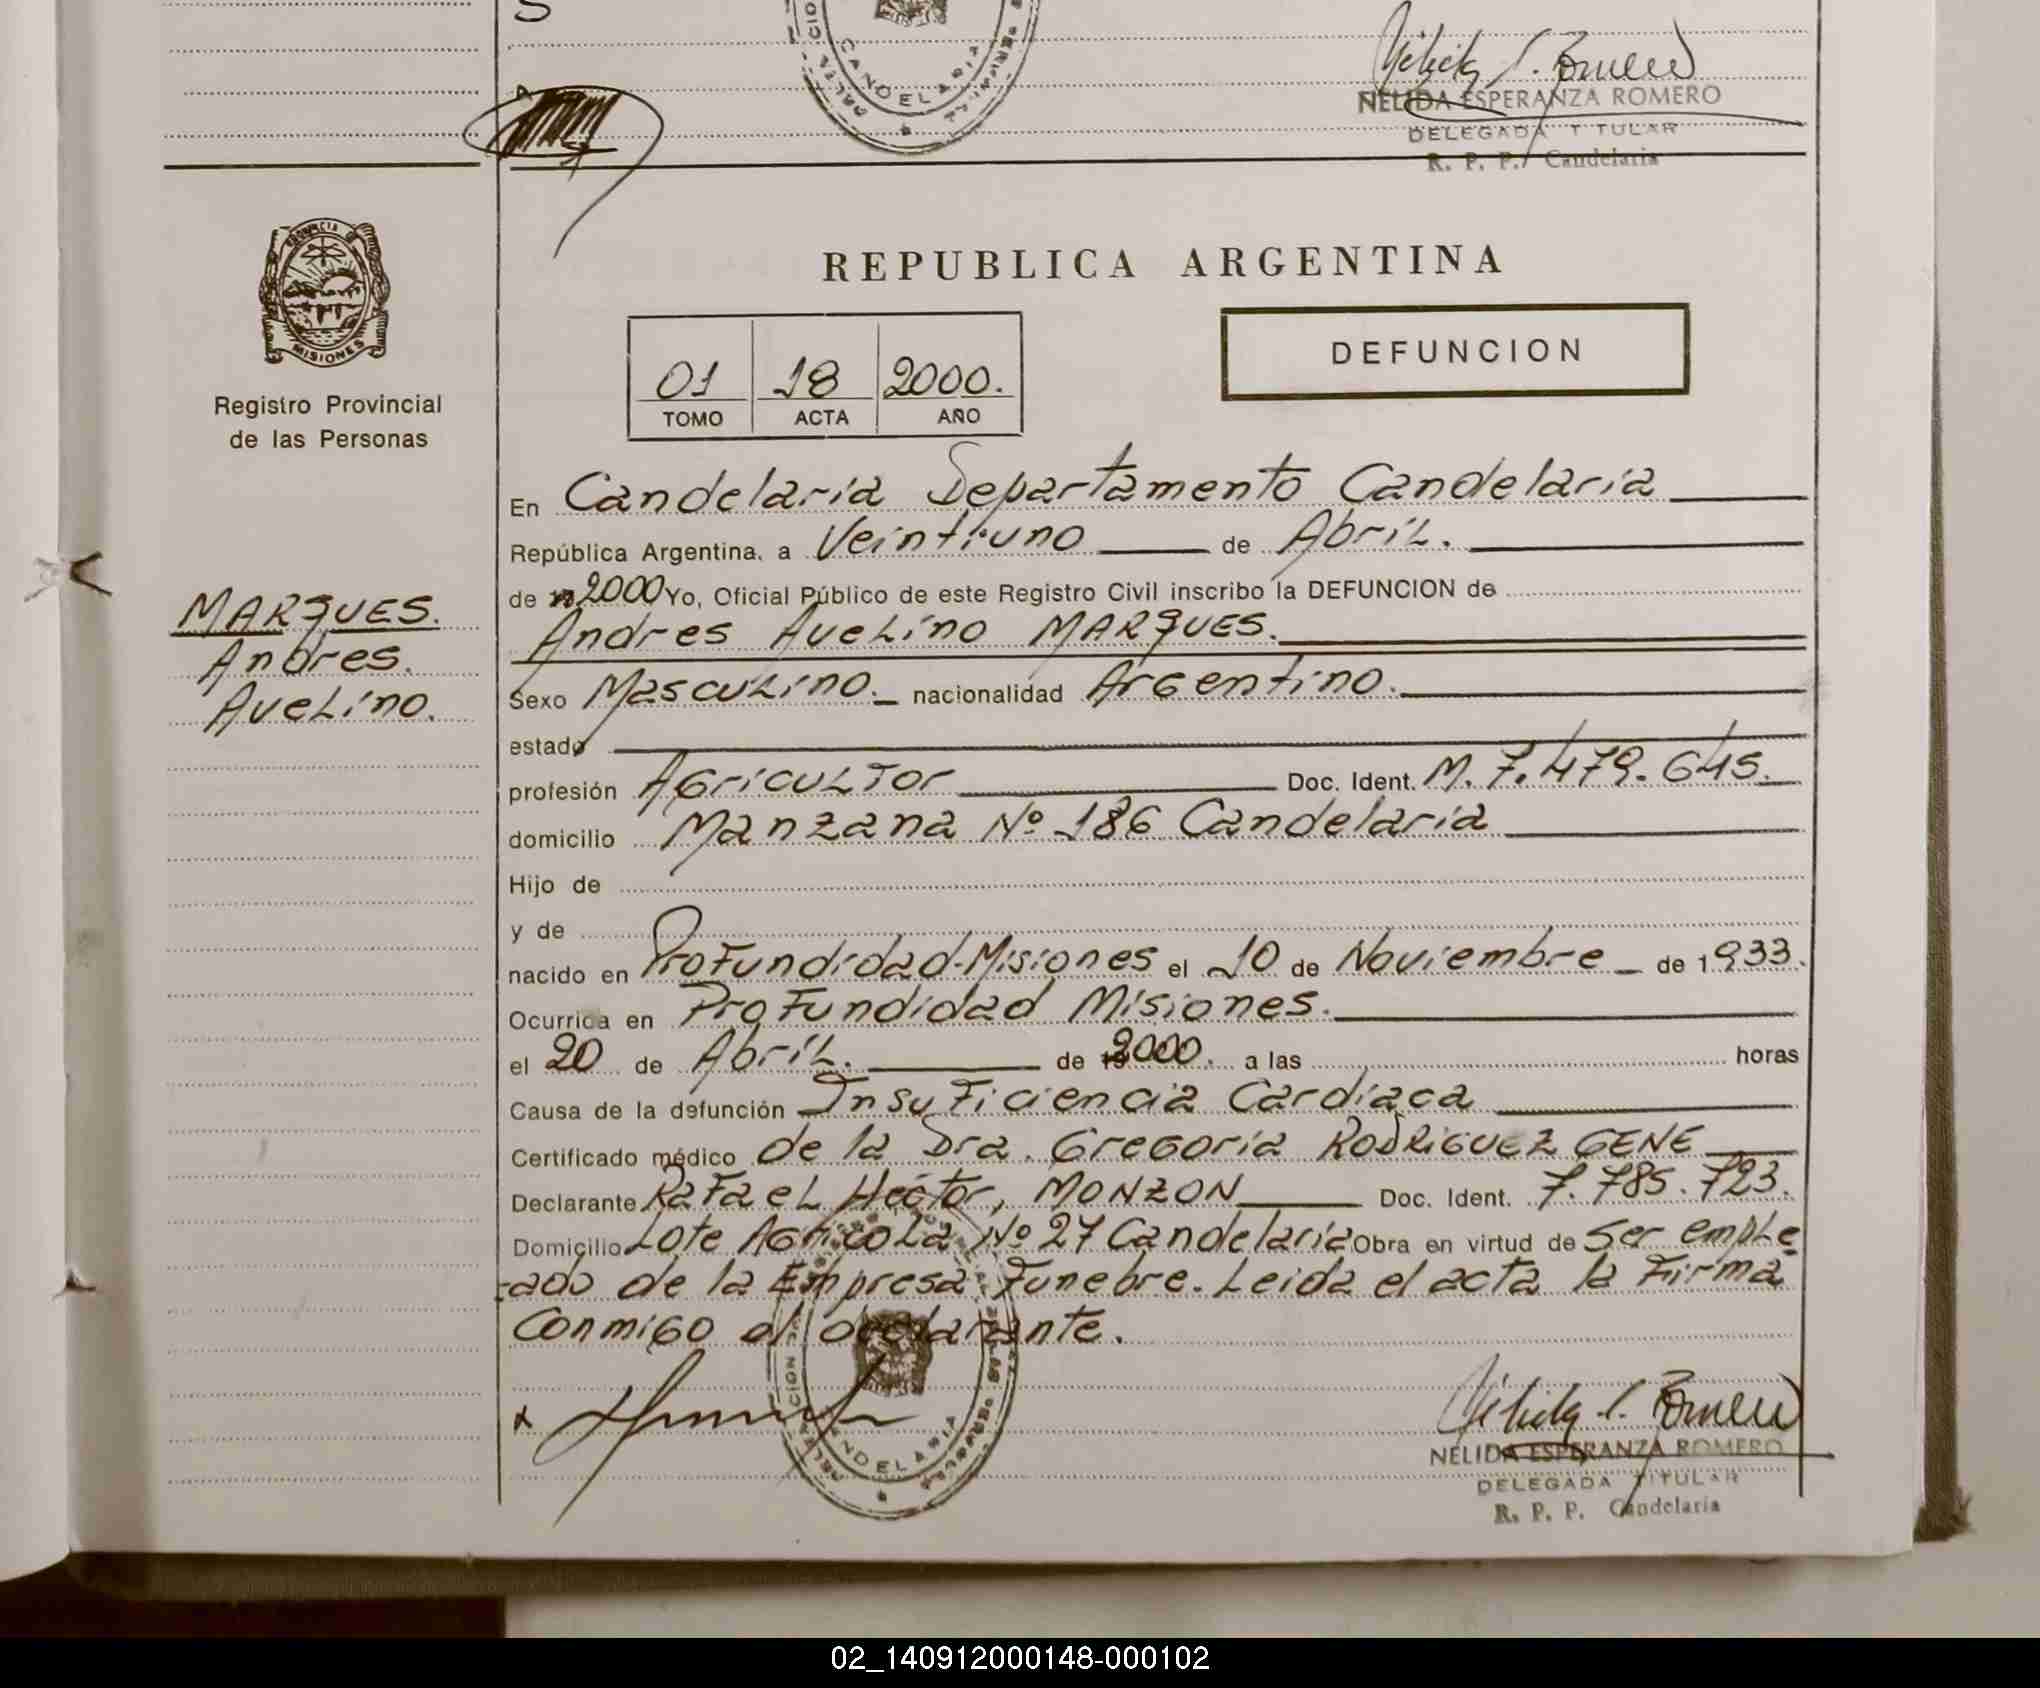 S
CANDELARIA
Nélida E. Romero
NELIDA ESPERANZA ROMERO
DELEGADA TITULAR
R. P. P. Candelaria
PROVINCIA DE
MISIONES
Registro Provincial
de las Personas
REPUBLICA ARGENTINA
01 18 2000.
TOMO ACTA AÑO
DEFUNCION
En Candelaria Departamento Candelaria
República Argentina, a Veintiuno de Abril.
de 2000 Yo, Oficial Público de este Registro Civil inscribo la DEFUNCION de
MARQUES.
Andres.
Avelino.
Andres Avelino MARQUES.
Sexo Masculino. nacionalidad Argentino.
estado
profesión Agricultor Doc. Ident. M. 7.479.645.
domicilio Manzana Nº 186 Candelaria
Hijo de
y de
nacido en Profundidad-Misiones el 10 de Noviembre de 1933.
Ocurrida en Profundidad Misiones.
el 20 de Abril. de 2000. a las horas
Causa de la defunción Insuficiencia Cardiaca
Certificado médico de la Dra. Gregoria RODRIGUEZ GENE
Declarante Rafael Hector, MONZON Doc. Ident. 7.785.723.
Domicilio Lote Agricola Nº 27 Candelaria Obra en virtud de ser emple
-ado de la Empresa Funebre. Leida el acta la Firma
Conmigo el declarante.
CANDELARIA
Nélida E. Romero
NELIDA ESPERANZA ROMERO
DELEGADA TITULAR
R. P. P. Candelaria
02_140912000148-000102